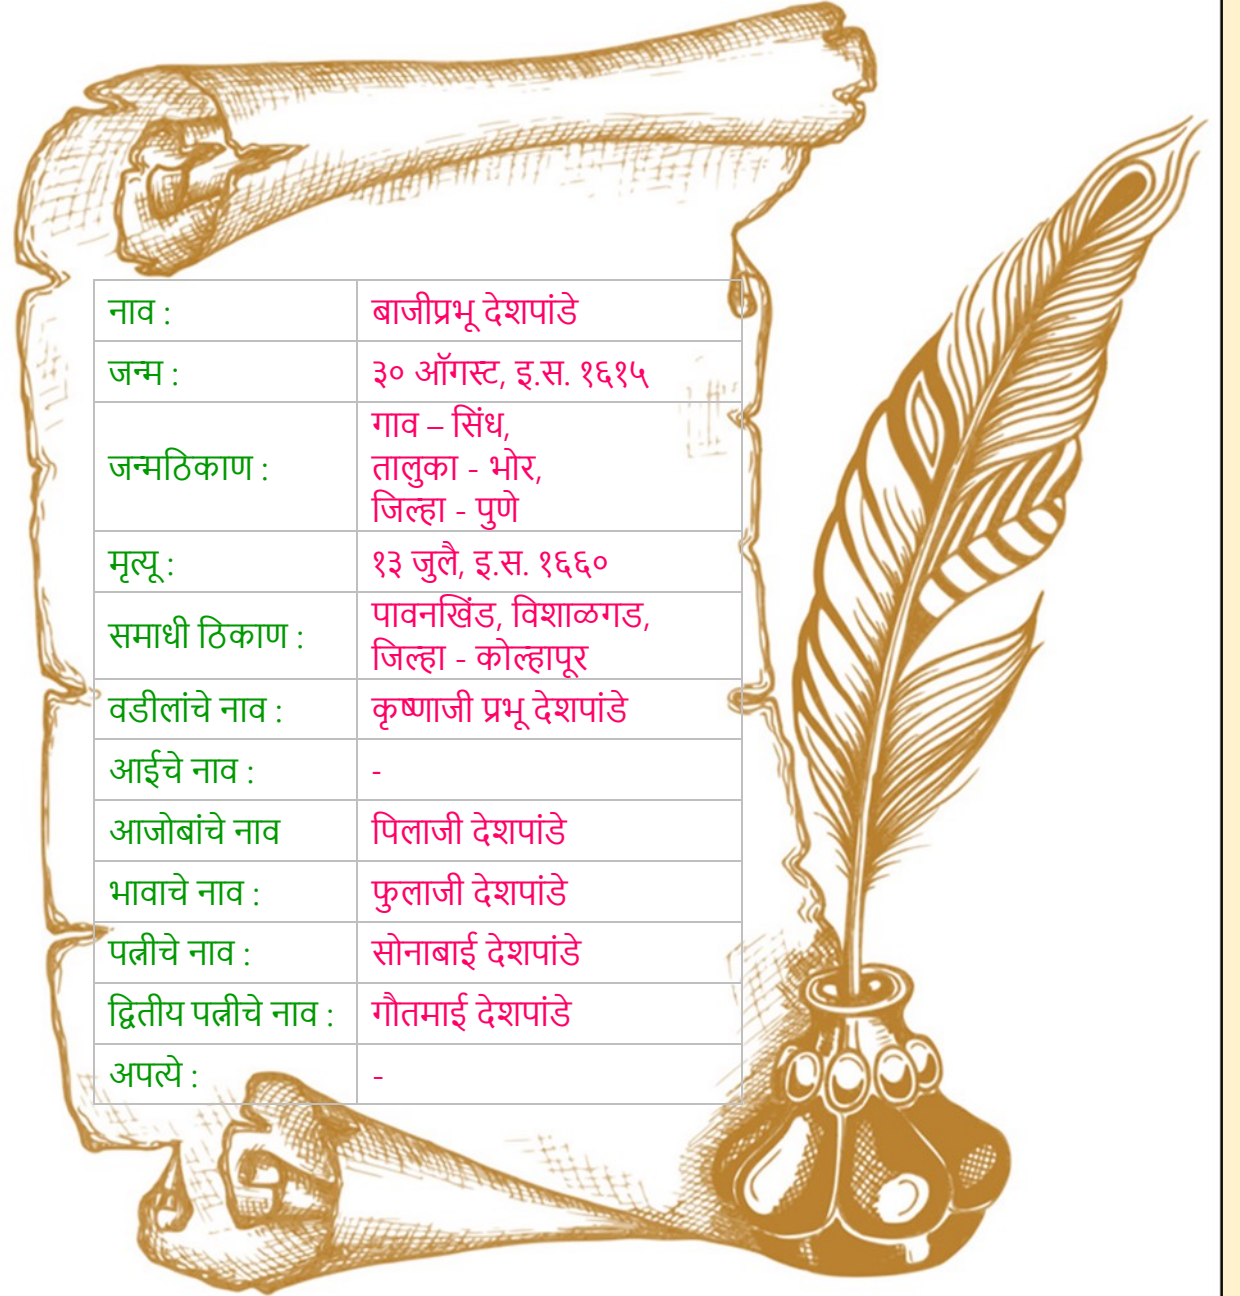 नाव : बाजीप्रभू देशपांडे
जन्म : ३० ऑगस्ट, इ.स. १६१५
जन्मठिकाण : गाव – सिंध,
तालुका - भोर,
जिल्हा - पुणे
मृत्यू : १३ जुलै, इ.स. १६६०
समाधी ठिकाण : पावनखिंड, विशाळगड,
जिल्हा - कोल्हापूर
वडीलांचे नाव : कृष्णाजी प्रभू देशपांडे
आईचे नाव : -
आजोबांचे नाव पिलाजी देशपांडे
भावाचे नाव : फुलाजी देशपांडे
पत्नीचे नाव : सोनाबाई देशपांडे
द्वितीय पत्नीचे नाव : गौतमाई देशपांडे
अपत्ये : -